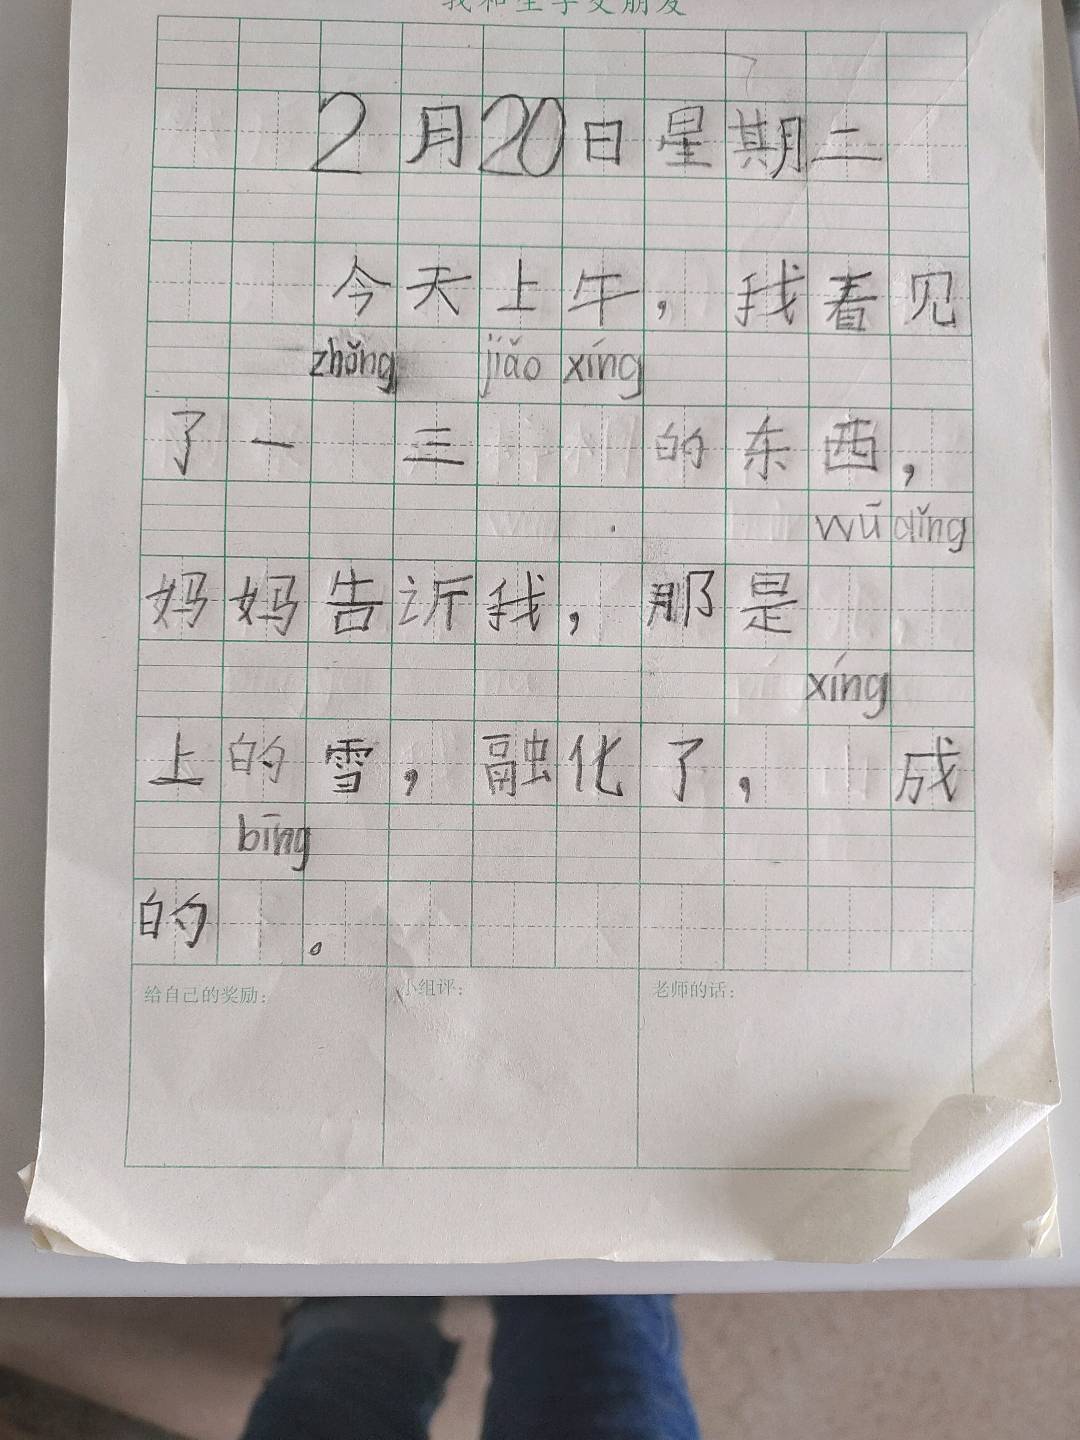 我和生字交朋友
2月20日星期二
今天上午，我看见
zhǒng jiǎo xíng
了一 三 的东西，
wū dǐng
妈妈告诉我，那是
xíng
上的雪，融化了， 成
bīng
的 。
给自己的奖励： 小组评： 老师的话：